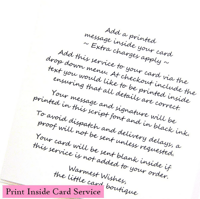 Add a printed
message inside your card
~ Extra charges apply ~
Add this service to your card via the
drop down menu. At checkout include the
text you would like to be printed inside
ensuring that all details are correct.
Your message and signature will be
printed in this script font and in black ink.
To avoid dispatch and delivery delays, a
proof will not be sent unless requested.
Your card will be sent blank inside if
this service is not added to your order.
Warmest Wishes,
the little card boutique
Print Inside Card Service